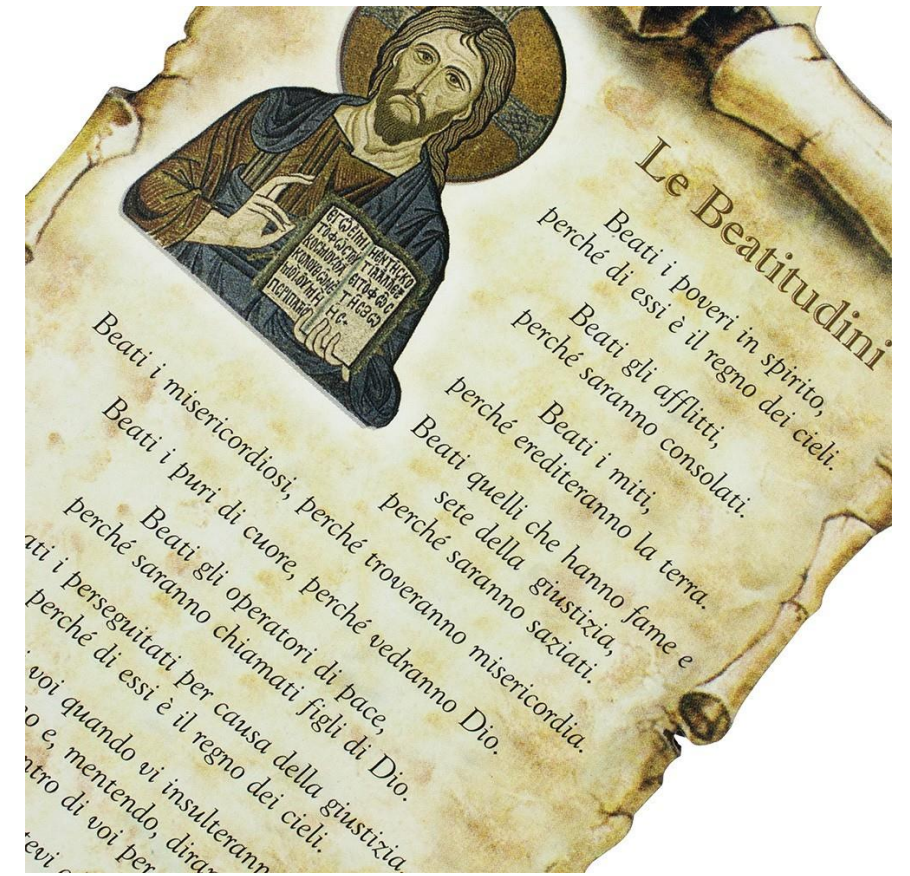 Le Beatitudini
Beati i poveri in spirito,
perché di essi è il regno dei cieli.
Beati gli afflitti,
perché saranno consolati.
Beati i miti,
perché erediteranno la terra.
Beati quelli che hanno fame e
sete della giustizia,
perché saranno saziati.
Beati i misericordiosi, perché troveranno misericordia.
Beati i puri di cuore, perché vedranno Dio.
Beati gli operatori di pace,
perché saranno chiamati figli di Dio.
ati i perseguitati per causa della giustizia,
perché di essi è il regno dei cieli.
voi quando vi insulterann
o e, mentendo, diran
ntro di voi per
tevi